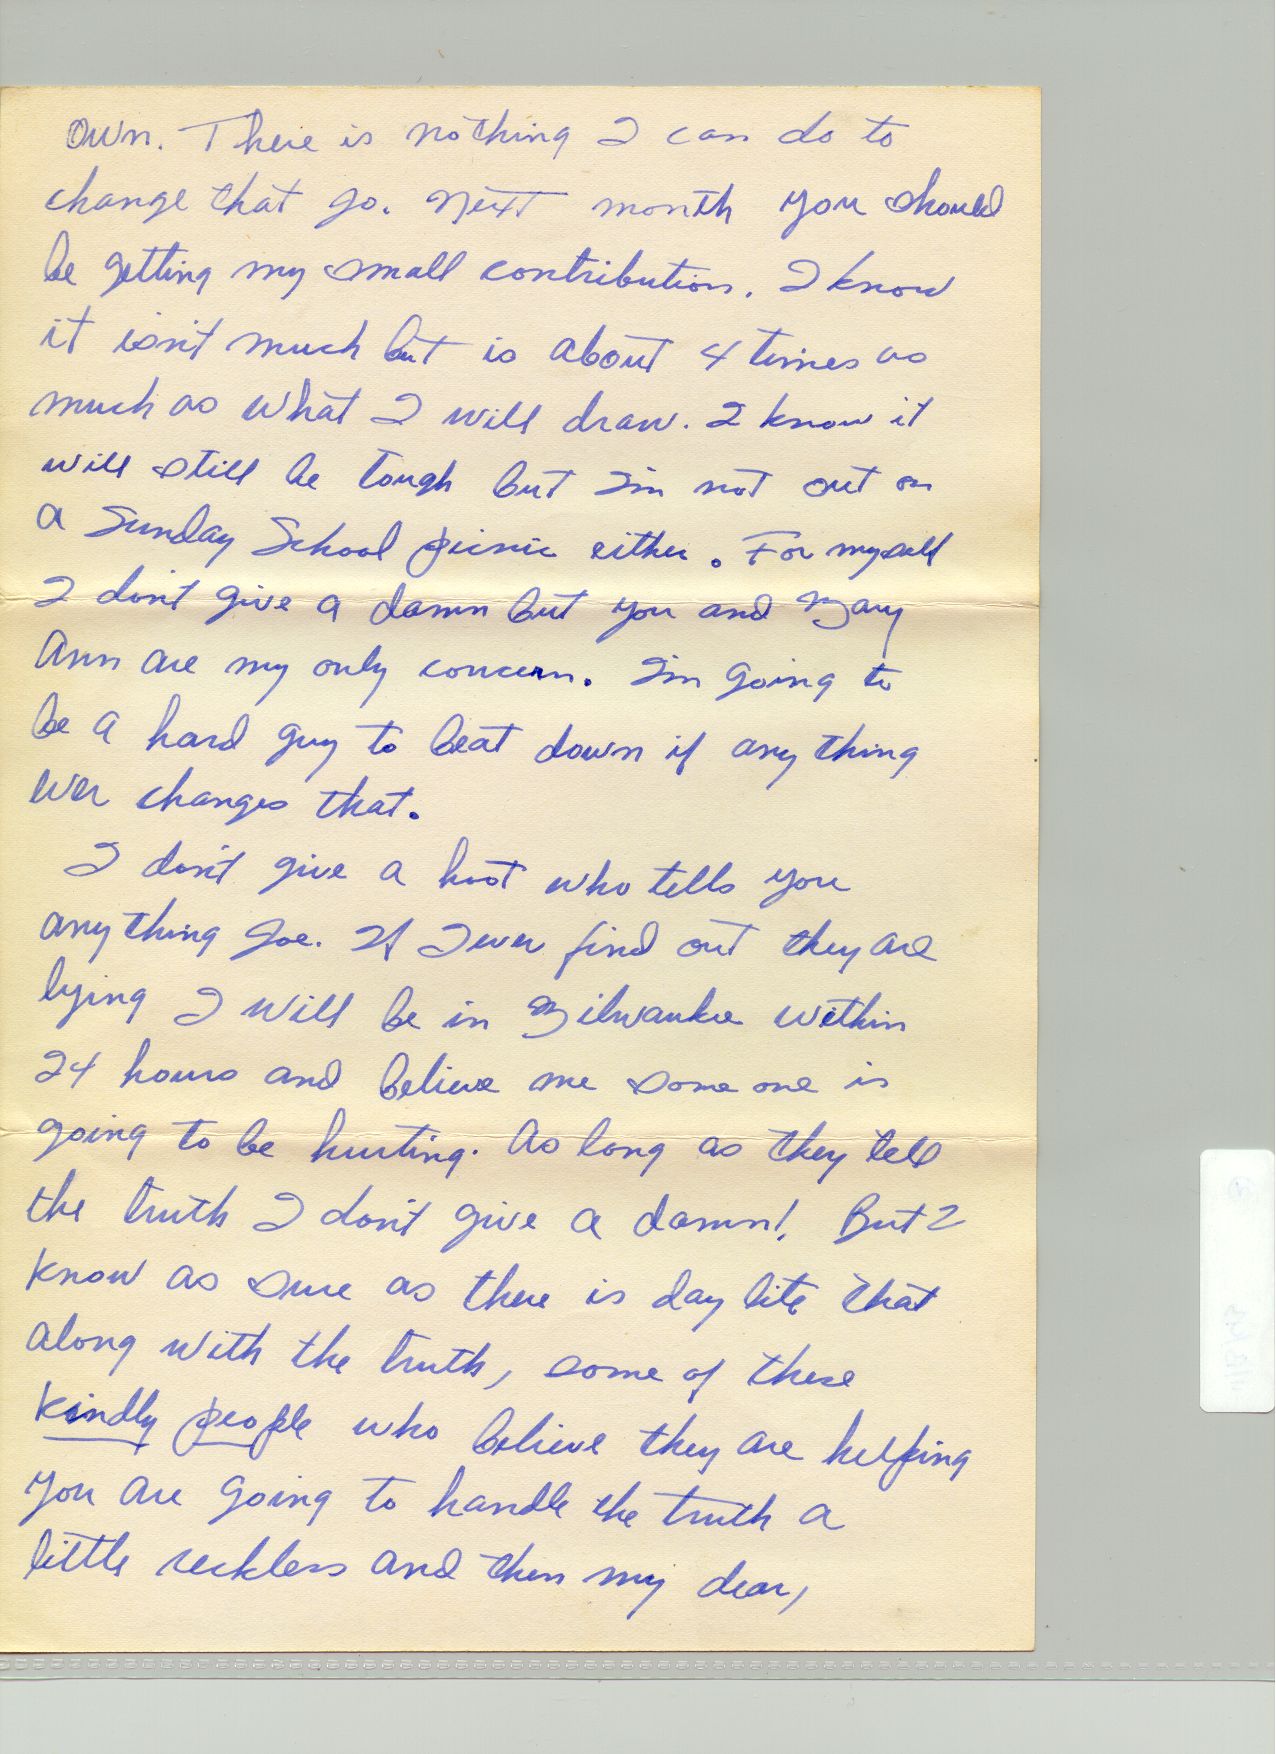 Own. There is nothing I can do to
change that Jo. Next month you should
be getting my small contribution. I know
it isn't much but is about 4 times as
much as what I will draw. I know it
will still be tough but I'm not out on
a Sunday School picnic either. For myself
I don't give a damn but you and Mary
Ann are my only concern. I'm going to
be a hard guy to beat down if any thing
ever changes that.
I don't give a hoot who tells you
any thing Joe. If I ever find out they are
lying I will be in Milwaukee within
24 hours and believe me some one is
going to be hurting. As long as they tell
the truth I don't give a damn! But I
know as sure as there is day lite that
along with the truth, some of these
kindly people who believe they are helping
you are going to handle the truth a
little reckless and then my dear,